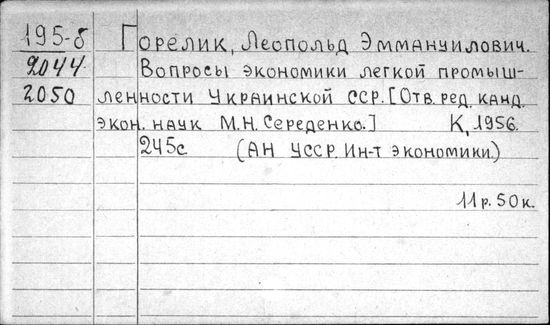 195-б Горелик, Леопольд Эммануилович.
9044 Вопросы экономики легкой промыш-
2050 ленности Украинской ССР. [Отв. ред. канд.
экон. наук М.Н. Середенко.] К, 1956.
245с (АН УССР. Ин-т экономики.)
11р. 50к.